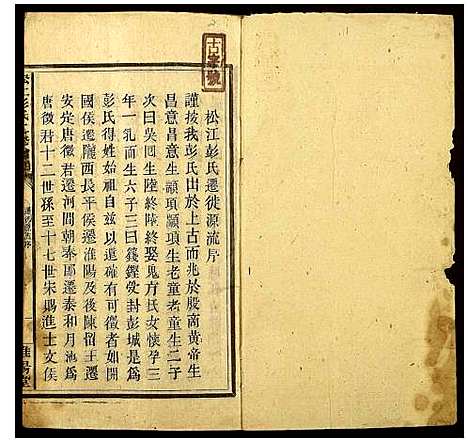 古字號
松江彭氏遷徙源流序
謹按我彭氏出於上古而兆於殷商黃帝生
昌意昌意生顓頊顓頊生老童老童生二子
次曰吳回生陸終陸終娶鬼方氏女懷孕三
年一乳而生六子三曰籛鏗受封彭城是為
彭氏得姓始祖自茲以還確有可徵者如開
國侯遷隴西長平侯遷淮陽及後陳留王遷
安定唐徵君遷河間朝泰郡遷泰和月池為
唐徵君十二世孫至十七世宋賜進士文侯